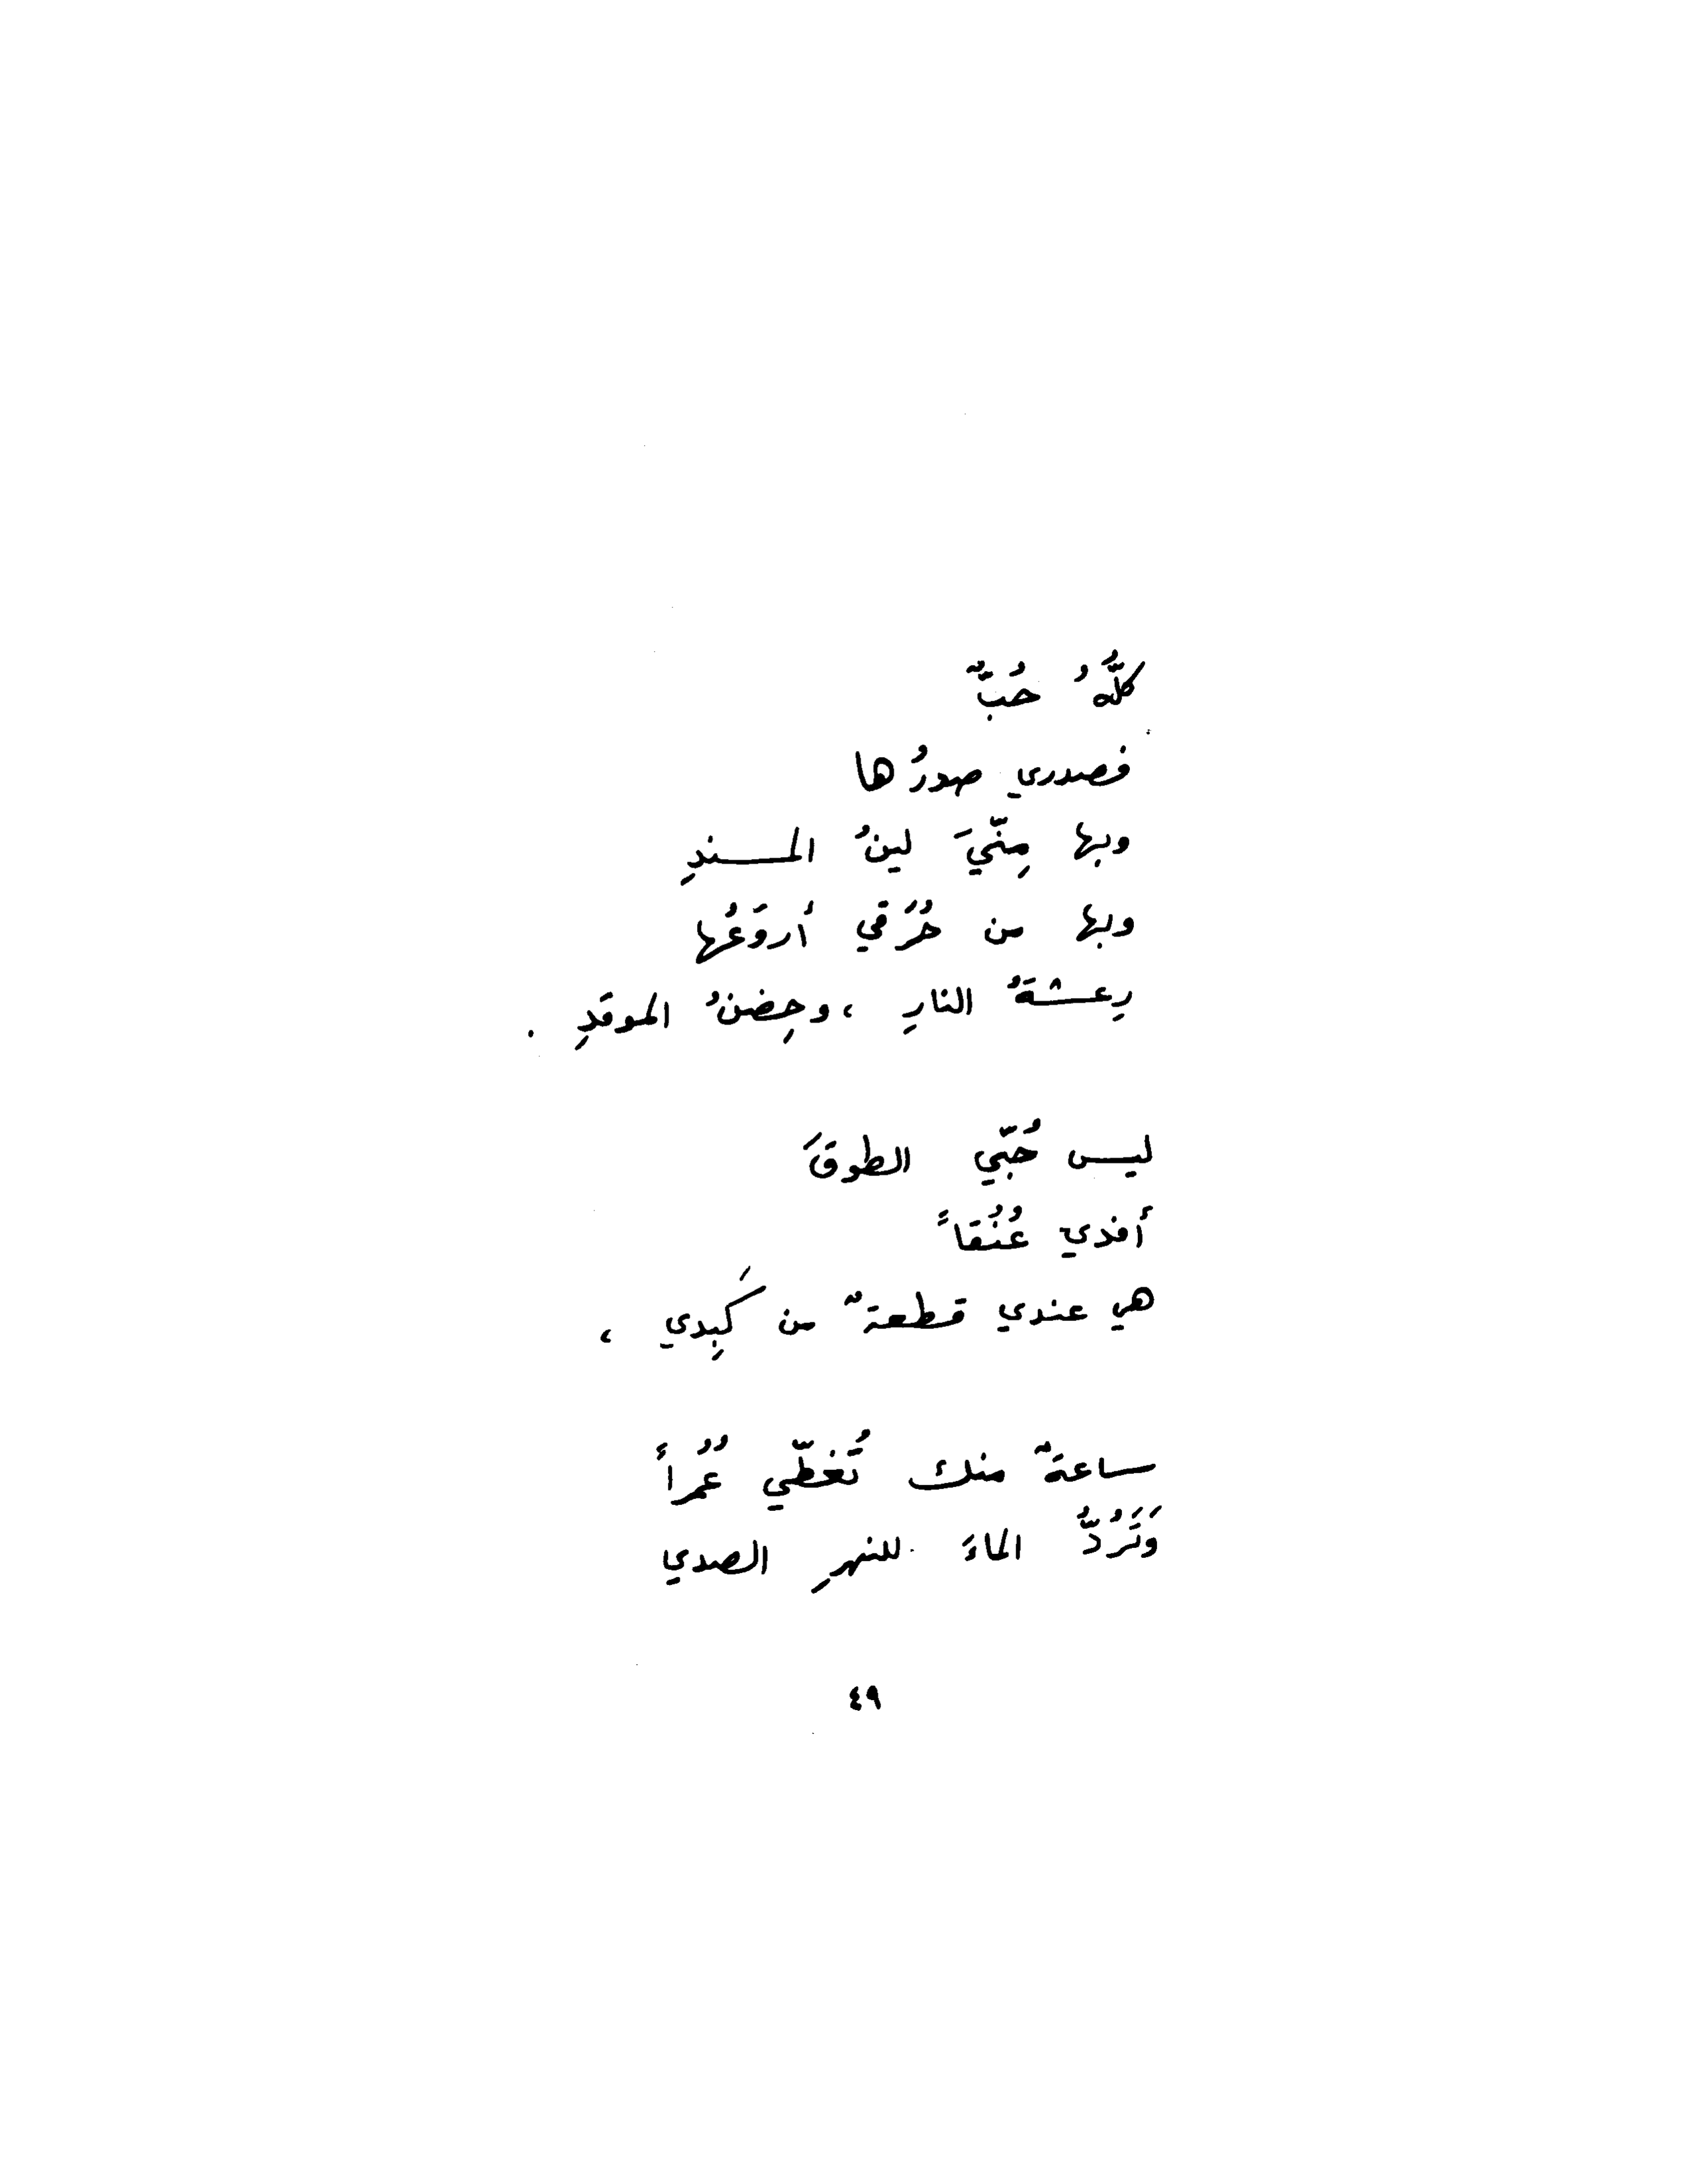 كلُّهُ حُبٌّ
فصدري صدرُها
وبها مِنّيَ لينُ المسندِ
وبها من حُرَقي أروَعُها
رِعشةُ النارِ ، وحِضنُ الموقَدِ .
ليس حُبّي الطوقَ
أفدي عُنُقاً
هي عندي قطعةٌ من كَبِدي ،
ساعةٌ منك تُغطّي عُمُراً
وَتَرُدُّ الماءَ للنهرِ الصدي
٤٩